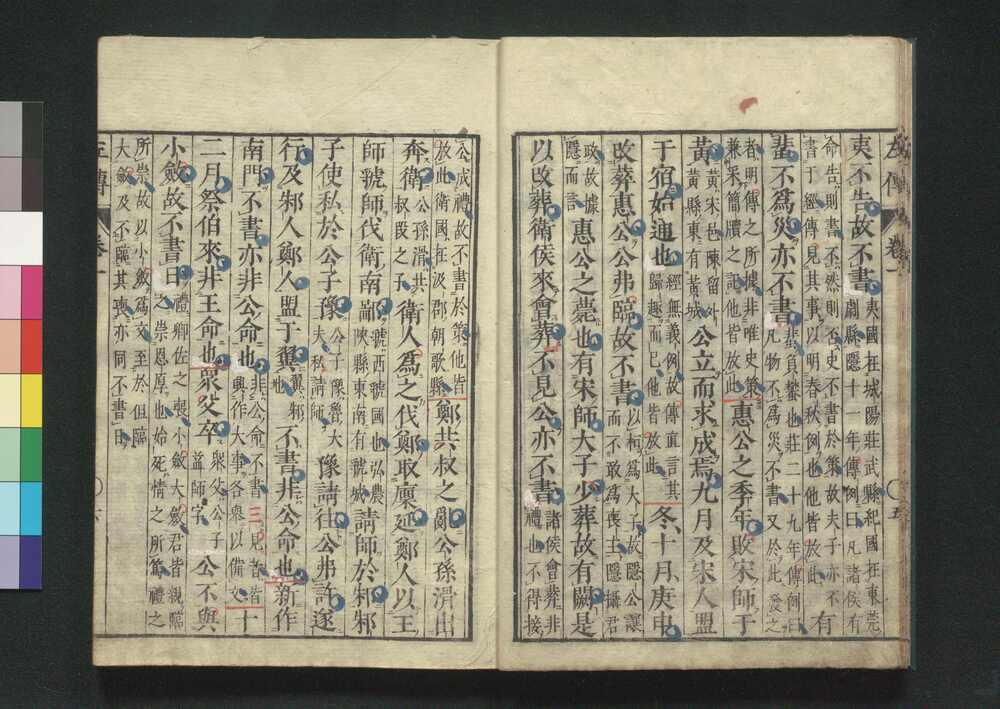 左傳 卷一 五
夷不告故不書夷國在城陽莊武縣紀國在東莞劇縣隱十一年傳例曰凡諸侯有
命告則書不然則不書史不書於策故夫子亦不書于經傳見其事以明春秋例也他皆放此有
蜚不爲災亦不書蜚負蠜也莊二十九年傳例曰凡物不爲災不書又於此發之
者明傳之所據非唯史策兼采簡牘之記他皆放此惠公之季年敗宋師于
黃黃宋邑陳留外黃縣東有黃城公立而求成焉九月及宋人盟
于宿始通也經無義例故傳直言其歸趣而已他皆放此冬十月庚申
改葬惠公公弗臨故不書以桓爲大子故隱公讓而不敢爲喪主隱攝君
政故據隱而言惠公之薨也有宋師大子少葬故有闕是
以改葬衛侯來會葬不見公亦不書諸侯會葬非禮也不得接
公成禮故不書於策他皆放此衛國在汲郡朝歌縣鄭共叔之亂公孫滑出
奔衛公孫滑共叔段之子衛人爲之伐鄭取廩延鄭人以王
師虢師伐衛南鄙虢西虢國也弘農陝縣東南有虢城請師於邾邾
子使私於公子豫公子豫魯大夫私請師豫請往公弗許遂
行及邾人鄭人盟于翼翼邾地不書非公命也新作
南門不書亦非公命也非公命不書三見者皆興作大事各舉以備文十
二月祭伯來非王命也衆父卒衆父公子益師字公不與
小斂故不書日禮卿佐之喪小斂大斂君皆親臨之崇恩厚也始死情之所篤禮之
所崇故以小斂爲文至於但臨大斂及不臨其喪亦同不書日
左傳 卷一 六